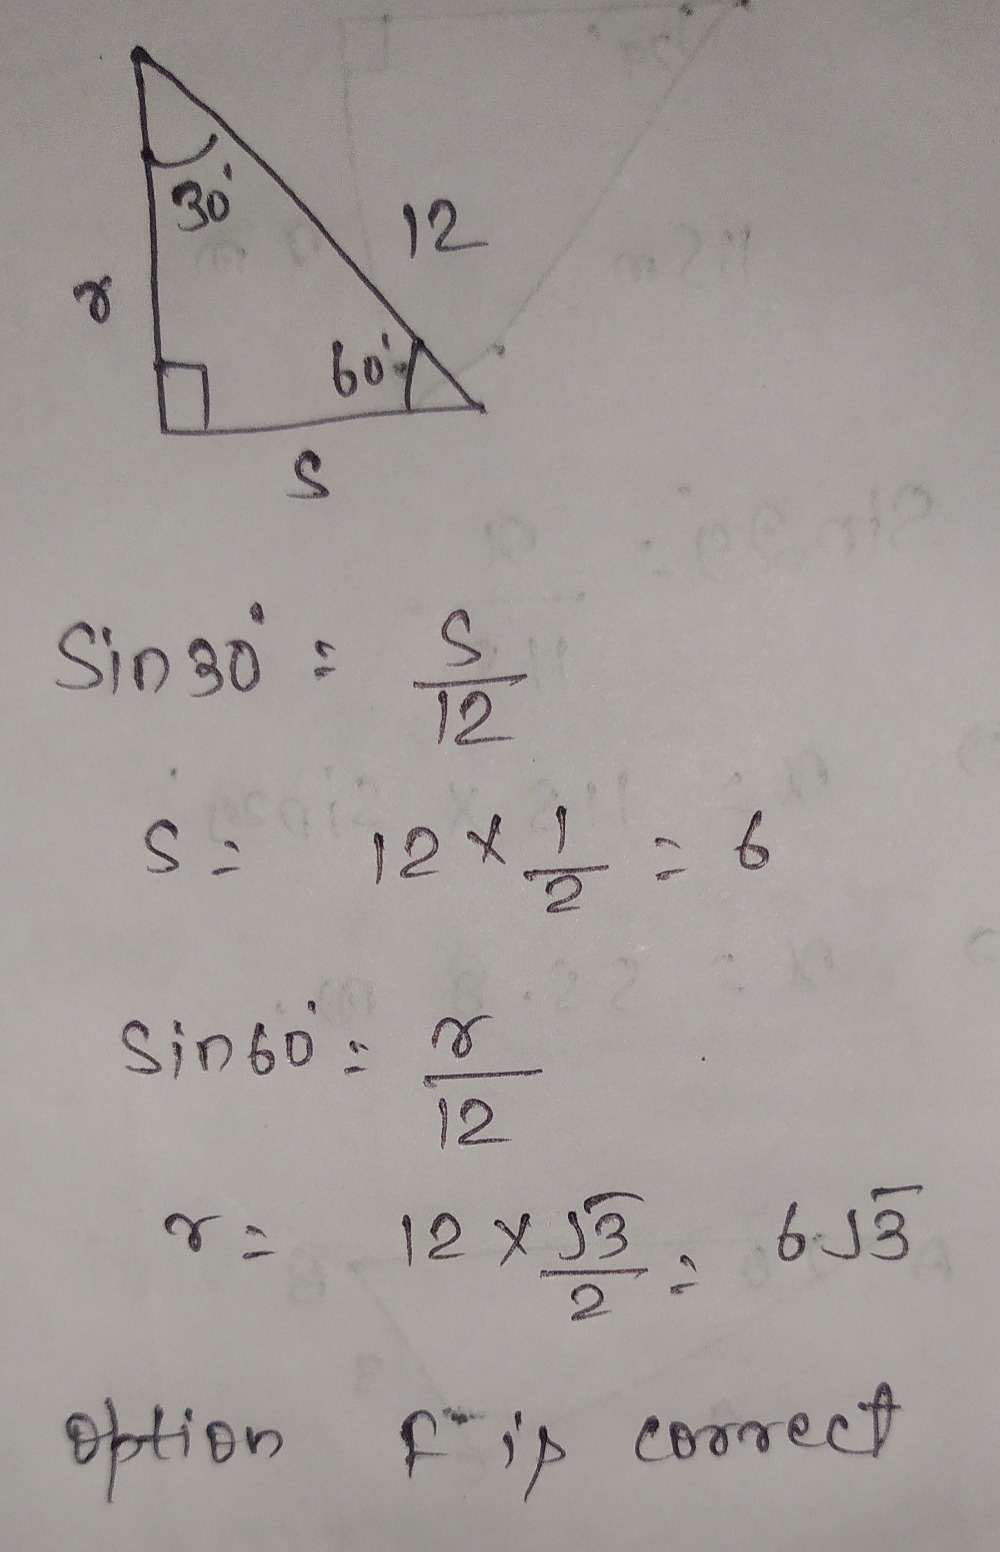 30°
12
r
60°
S
Sin 30° = S/12
S = 12 × 1/2 = 6
Sin 60° = r/12
r = 12 × √3/2 = 6√3
option F is correct